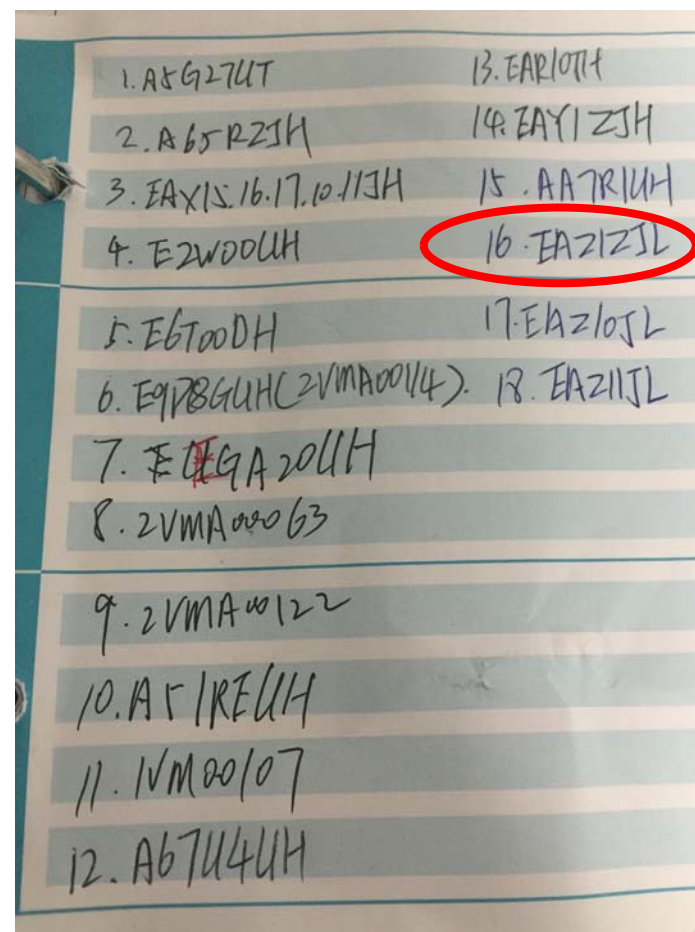 1. A5G27UT
2. A65RZJH
3. EAX15.16.17.10.11JH
4. E2W00UH
5. E6T00DH
6. E9P8GUH(2VMA00114).
7. GA20UH
8. 2VMA00063
9. 2VMA00122
10. A51REUH
11. 1VM00107
12. A67U4UH
13. EAR10TH
14. EAY1ZJH
15. AA7R1UH
16. EAZ1ZJL
17. EAZ10JL
18. EAZ11JL